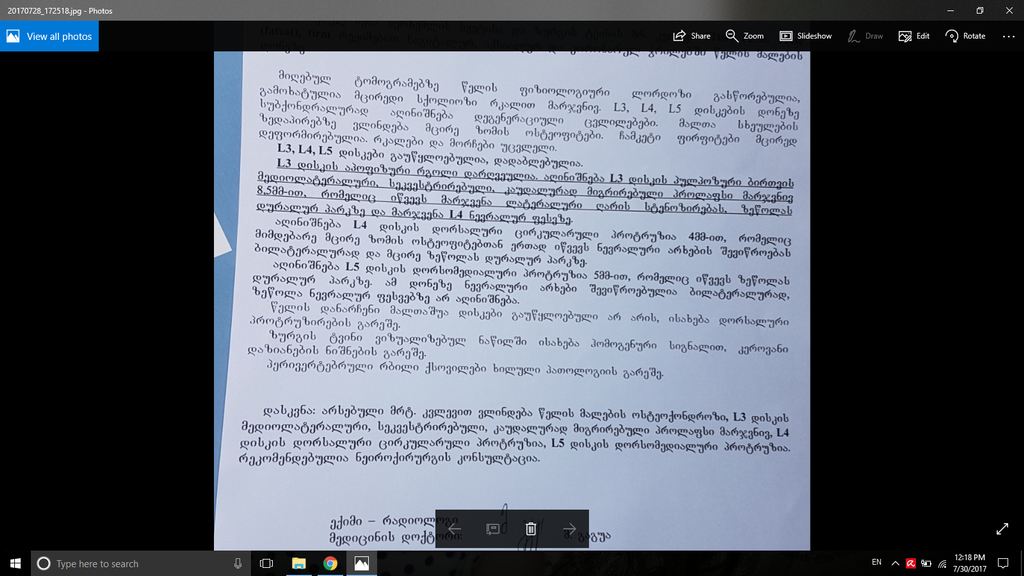 20170728_172518.jpg - Photos
View all photos
Share
Zoom
Slideshow
Draw
Edit
Rotate
მიღებულ ტომოგრამებზე წელის ფიზიოლოგიური ლორდოზი გასწორებულია,
გამოხატულია მცირედი სქოლიოზი რკალით მარჯვნივ. L3, L4, L5 დისკების დონეზე
სუბქონდრალურად აღინიშნება დეგენერაციული ცვლილებები. მალთა სხეულების
ზედაპირებზე ვლინდება მცირე ზომის ოსტეოფიტები. ჩამკეტი ფირფიტები მცირედ
დეფორმირებულია. რკალები და მორჩები უცვლელი.
L3, L4, L5 დისკები გაუწყლოებულია, დადაბლებულია.
L3 დისკის აპოფიზური რგოლი დარღვეულია. აღინიშნება L3 დისკის პულპოზური ბირთვის
მედიოლატერალური, სეკვესტრირებული, კაუდალურად მიგრირებული პროლაფსი მარჯვნივ
8.5მმ-ით, რომელიც იწვევს მარჯვენა ლატერალური ღარის სტენოზირებას, ზეწოლას
დურალურ პარკზე და მარჯვენა L4 ნევრალურ ფესვზე.
აღინიშნება L4 დისკის დორსალური ცირკულარული პროტრუზია 4მმ-ით, რომელიც
მიმდებარე მცირე ზომის ოსტეოფიტებთან ერთად იწვევს ნევრალური არხების შევიწროებას
ბილატერალურად და მცირე ზეწოლას დურალურ პარკზე.
აღინიშნება L5 დისკის დორსომედიალური პროტრუზია 5მმ-ით, რომელიც იწვევს ზეწოლას
დურალურ პარკზე. ამ დონეზე ნევრალური არხები შევიწროებულია ბილატერალურად,
ზეწოლა ნევრალურ ფესვებზე არ აღინიშნება.
წელის დანარჩენი მალთაშუა დისკები გაუწყლოებული არ არის, ისახება დორსალური
პროტრუზირების გარეშე.
ზურგის ტვინი ვიზუალიზებულ ნაწილში ისახება ჰომოგენური სიგნალით, კეროვანი
დაზიანების ნიშნების გარეშე.
პერივერტებრული რბილი ქსოვილები ხილული პათოლოგიის გარეშე.
დასკვნა: არსებული მრტ. კვლევით ვლინდება წელის მალების ოსტეოქონდროზი, L3 დისკის
მედიოლატერალური, სეკვესტრირებული, კაუდალურად მიგრირებული პროლაფსი მარჯვნივ, L4
დისკის დორსალური ცირკულარული პროტრუზია, L5 დისკის დორსომედიალური პროტრუზია.
რეკომენდებულია ნეიროქირურგის კონსულტაცია.
ექიმი – რადიოლოგი
მედიცინის დოქტორი:
Type here to search
EN
12:18 PM
7/30/2017